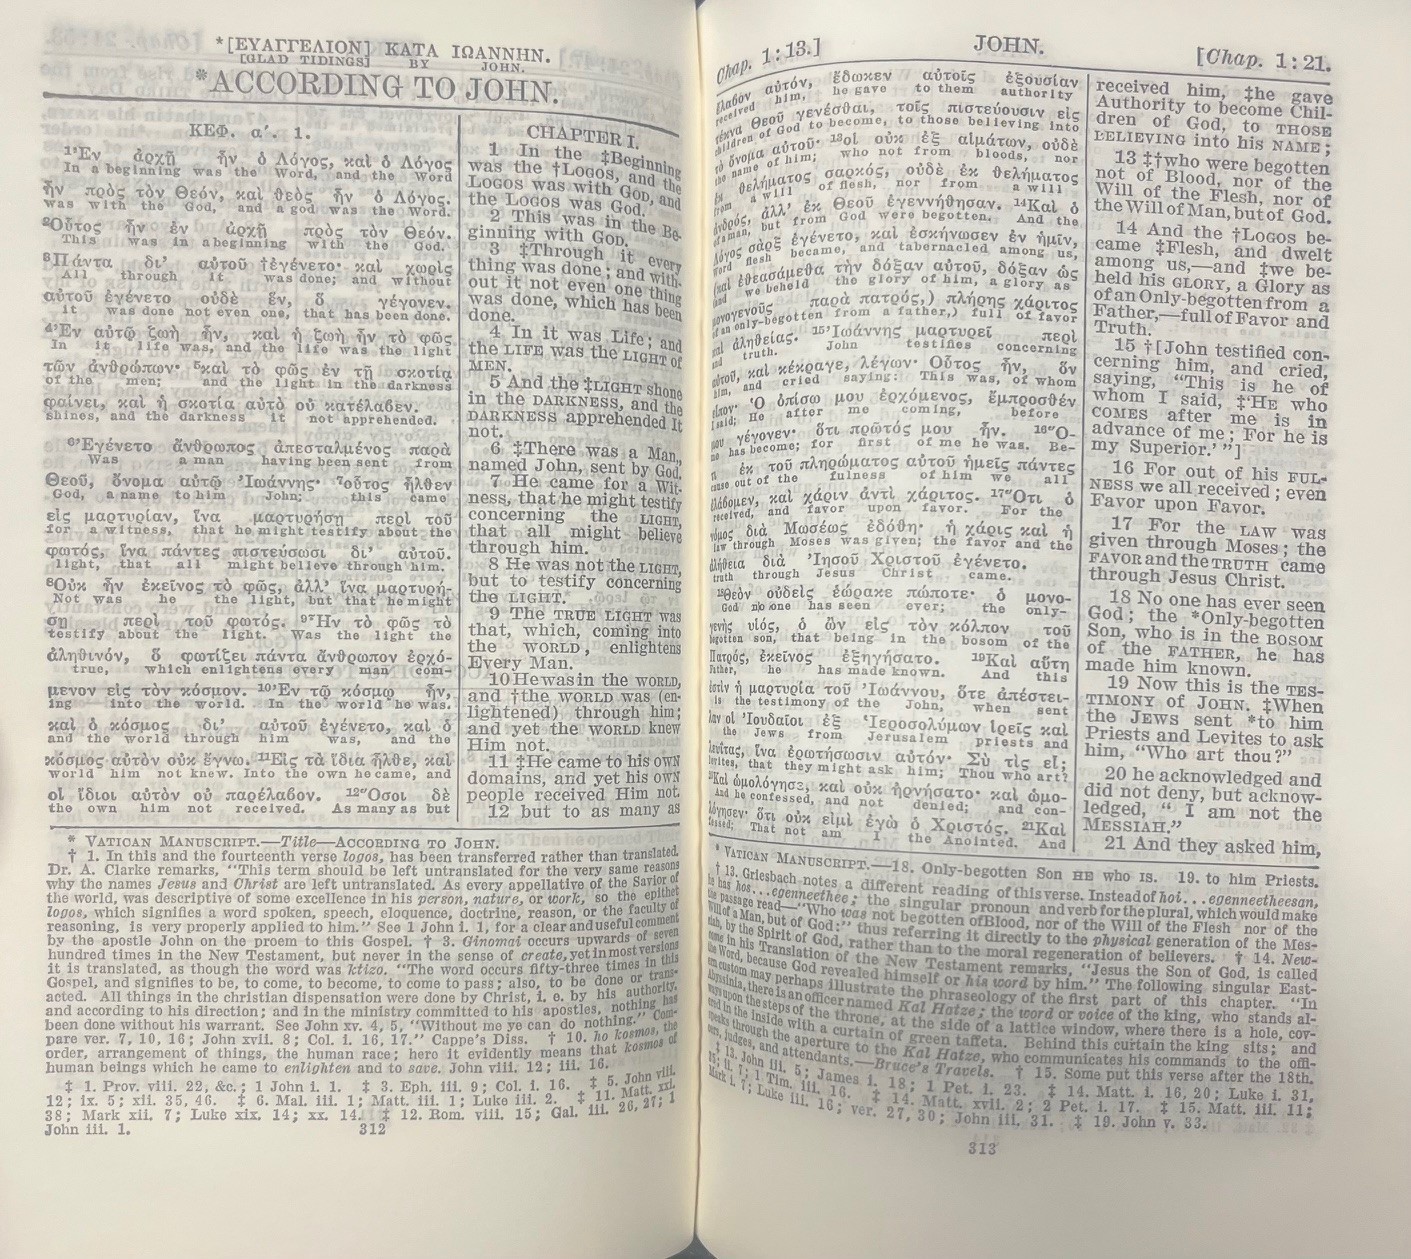 *[ΕΥΑΓΓΕΛΙΟΝ] ΚΑΤΑ ΙΩΑΝΝΗΝ.
[GLAD TIDINGS] BY JOHN.
*ACCORDING TO JOHN.
ΚΕΦ. α΄. 1.
1 Ἐν ἀρχῇ ἦν ὁ Λόγος, καὶ ὁ Λόγος
In a beginning was the Word, and the Word
ἦν πρὸς τὸν Θεόν, καὶ θεὸς ἦν ὁ Λόγος.
was with the God, and a god was the Word.
2 Οὗτος ἦν ἐν ἀρχῇ πρὸς τὸν Θεόν.
This was in a beginning with the God.
3 Πάντα δι' αὐτοῦ †ἐγένετο· καὶ χωρὶς
All through it was done; and without
αὐτοῦ ἐγένετο οὐδὲ ἕν, ὃ γέγονεν.
it was done not even one, that has been done.
4 Ἐν αὐτῷ ζωὴ ἦν, καὶ ἡ ζωὴ ἦν τὸ φῶς
In it life was, and the life was the light
τῶν ἀνθρώπων· 5 καὶ τὸ φῶς ἐν τῇ σκοτίᾳ
of the men; and the light in the darkness
φαίνει, καὶ ἡ σκοτία αὐτὸ οὐ κατέλαβεν.
shines, and the darkness it not apprehended.
6 Ἐγένετο ἄνθρωπος ἀπεσταλμένος παρὰ
Was a man having been sent from
Θεοῦ, ὄνομα αὐτῷ Ἰωάννης· 7 οὗτος ἦλθεν
God, a name to him John; this came
εἰς μαρτυρίαν, ἵνα μαρτυρήσῃ περὶ τοῦ
for a witness, that he might testify about the
φωτός, ἵνα πάντες πιστεύσωσι δι' αὐτοῦ.
light, that all might believe through him.
8 Οὐκ ἦν ἐκεῖνος τὸ φῶς, ἀλλ' ἵνα μαρτυρή-
Not was he the light, but that he might
σῃ περὶ τοῦ φωτός. 9 Ἦν τὸ φῶς τὸ
testify about the light. Was the light the
ἀληθινόν, ὃ φωτίζει πάντα ἄνθρωπον ἐρχό-
true, which enlightens every man com-
μενον εἰς τὸν κόσμον. 10 Ἐν τῷ κόσμῳ ἦν,
ing into the world. In the world he was.
καὶ ὁ κόσμος δι' αὐτοῦ ἐγένετο, καὶ ὁ
and the world through him was, and the
κόσμος αὐτὸν οὐκ ἔγνω. 11 Εἰς τὰ ἴδια ἦλθε, καὶ
world him not knew. Into the own he came, and
οἱ ἴδιοι αὐτὸν οὐ παρέλαβον. 12 Ὅσοι δὲ
the own him not received. As many as but
CHAPTER I.
1 In the ‡Beginning
was the †LOGOS, and the
LOGOS was with GOD, and
the LOGOS was God.
2 This was in the Be-
ginning with GOD.
3 ‡Through it every
thing was done; and with-
out it not even one thing
was done, which has been
done.
4 In it was Life; and
the LIFE was the LIGHT of
MEN.
5 And the ‡LIGHT shone
in the DARKNESS, and the
DARKNESS apprehended It
not.
6 ‡There was a Man,
named John, sent by God.
7 He came for a Wit-
ness, that he might testify
concerning the LIGHT,
that all might believe
through him.
8 He was not the LIGHT,
but to testify concerning
the LIGHT.
9 The TRUE LIGHT was
that, which, coming into
the WORLD, enlightens
Every Man.
10 He was in the WORLD,
and †the WORLD was (en-
lightened) through him;
and yet the WORLD knew
Him not.
11 ‡He came to his OWN
domains, and yet his OWN
people received Him not.
12 but to as many as
* VATICAN MANUSCRIPT.—Title—ACCORDING TO JOHN.
† 1. In this and the fourteenth verse logos, has been transferred rather than translated.
Dr. A. Clarke remarks, "This term should be left untranslated for the very same reasons
why the names Jesus and Christ are left untranslated. As every appellative of the Savior of
the world, was descriptive of some excellence in his person, nature, or work, so the epithet
logos, which signifies a word spoken, speech, eloquence, doctrine, reason, or the faculty of
reasoning, is very properly applied to him." See 1 John i. 1, for a clear and useful comment
by the apostle John on the proem to this Gospel. † 3. Ginomai occurs upwards of seven
hundred times in the New Testament, but never in the sense of create, yet in most versions
it is translated, as though the word was ktizo. "The word occurs fifty-three times in this
Gospel, and signifies to be, to come, to become, to come to pass; also, to be done or trans-
acted. All things in the christian dispensation were done by Christ, i. e. by his authority,
and according to his direction; and in the ministry committed to his apostles, nothing has
been done without his warrant. See John xv. 4, 5, "Without me ye can do nothing." Com-
pare ver. 7, 10, 16; John xvii. 8; Col. i. 16, 17." Cappe's Diss. † 10. ho kosmos, the
order, arrangement of things, the human race; here it evidently means that kosmos of
human beings which he came to enlighten and to save. John viii. 12; iii. 16.
‡ 1. Prov. viii. 22, &c.; 1 John i. 1. ‡ 3. Eph. iii. 9; Col. i. 16. ‡ 5. John viii.
12; ix. 5; xii. 35, 46. ‡ 6. Mal. iii. 1; Matt. iii. 1; Luke iii. 2. ‡ 11. Matt. xxi.
38; Mark xii. 7; Luke xix. 14; xx. 14. ‡ 12. Rom. viii. 15; Gal. iii. 26, 27; 1
John iii. 1.
312
Chap. 1:13.]
JOHN.
[Chap. 1:21.
ἔλαβον αὐτόν, ἔδωκεν αὐτοῖς ἐξουσίαν
received him, he gave to them authority
τέκνα Θεοῦ γενέσθαι, τοῖς πιστεύουσιν εἰς
children of God to become, to those believing into
τὸ ὄνομα αὐτοῦ· 13 οἳ οὐκ ἐξ αἱμάτων, οὐδὲ
the name of him; who not from bloods, nor
ἐκ θελήματος σαρκός, οὐδὲ ἐκ θελήματος
from a will of flesh, nor from a will
ἀνδρός, ἀλλ' ἐκ Θεοῦ ἐγεννήθησαν. 14 Καὶ ὁ
of a man, but from God were begotten. And the
Λόγος σὰρξ ἐγένετο, καὶ ἐσκήνωσεν ἐν ἡμῖν,
Word flesh became, and tabernacled among us,
(καὶ ἐθεασάμεθα τὴν δόξαν αὐτοῦ, δόξαν ὡς
(and we beheld the glory of him, a glory as
μονογενοῦς παρὰ πατρός,) πλήρης χάριτος
of an only-begotten from a father,) full of favor
καὶ ἀληθείας. 15 Ἰωάννης μαρτυρεῖ περὶ
and truth. John testifies concerning
αὐτοῦ, καὶ κέκραγε, λέγων· Οὗτος ἦν, ὃν
him, and cried saying; This was, of whom
εἶπον· Ὁ ὀπίσω μου ἐρχόμενος, ἔμπροσθέν
I said; He after me coming, before
μου γέγονεν· ὅτι πρῶτός μου ἦν. 16 Ὅ-
me has become; for first of me he was. Be-
τι ἐκ τοῦ πληρώματος αὐτοῦ ἡμεῖς πάντες
cause out of the fulness of him we all
ἐλάβομεν, καὶ χάριν ἀντὶ χάριτος. 17 Ὅτι ὁ
received, and favor upon favor. For the
νόμος διὰ Μωσέως ἐδόθη· ἡ χάρις καὶ ἡ
law through Moses was given; the favor and the
ἀλήθεια διὰ Ἰησοῦ Χριστοῦ ἐγένετο.
truth through Jesus Christ came.
18 Θεὸν οὐδεὶς ἑώρακε πώποτε· ὁ μονο-
God no one has seen ever; the only-
γενὴς υἱός, ὁ ὢν εἰς τὸν κόλπον τοῦ
begotten son, that being in the bosom of the
Πατρός, ἐκεῖνος ἐξηγήσατο. 19 Καὶ αὕτη
father, he has made known. And this
ἐστὶν ἡ μαρτυρία τοῦ Ἰωάννου, ὅτε ἀπέστει-
is the testimony of the John, when sent
λαν οἱ Ἰουδαῖοι ἐξ Ἱεροσολύμων ἱερεῖς καὶ
the Jews from Jerusalem priests and
Λευΐτας, ἵνα ἐρωτήσωσιν αὐτόν· Σὺ τίς εἶ;
Levites, that they might ask him; Thou who art?
20 Καὶ ὡμολόγησε, καὶ οὐκ ἠρνήσατο· καὶ ὡμο-
And he confessed, and not denied; and con-
λόγησεν· ὅτι οὐκ εἰμὶ ἐγὼ ὁ Χριστός. 21 Καὶ
fessed; That not am I the Anointed. And
received him, ‡he gave
Authority to become Chil-
dren of God, to THOSE
BELIEVING into his NAME;
13 ‡†who were begotten
not of Blood, nor of the
Will of the Flesh, nor of
the Will of Man, but of God.
14 And the †LOGOS be-
came ‡Flesh, and dwelt
among us,—and ‡we be-
held his GLORY, a Glory as
of an Only-begotten from a
Father,—full of Favor and
Truth.
15 †[John testified con-
cerning him, and cried,
saying, "This is he of
whom I said, ‡'HE who
COMES after me is in
advance of me; For he is
my Superior.'"]
16 For out of his FUL-
NESS we all received; even
Favor upon Favor.
17 For the LAW was
given through Moses; the
FAVOR and the TRUTH came
through Jesus Christ.
18 No one has ever seen
God; the *Only-begotten
Son, who is in the BOSOM
of the FATHER, he has
made him known.
19 Now this is the TES-
TIMONY of JOHN. ‡When
the JEWS sent *to him
Priests and Levites to ask
him, "Who art thou?"
20 he acknowledged and
did not deny, but acknow-
ledged, "I am not the
MESSIAH."
21 And they asked him,
* VATICAN MANUSCRIPT.—18. Only-begotten Son HE who IS. 19. to him Priests.
† 13. Griesbach notes a different reading of this verse. Instead of hoi . . . egenneetheesan,
he has hos . . . egenneethee; the singular pronoun and verb for the plural, which would make
the passage read—"Who was not begotten of Blood, nor of the Will of the Flesh nor of the
Will of a Man, but of God:" thus referring it directly to the physical generation of the Mes-
siah, by the Spirit of God, rather than to the moral regeneration of believers. † 14. New-
come in his Translation of the New Testament remarks, "Jesus the Son of God, is called
the Word, because God revealed himself or his word by him." The following singular East-
ern custom may perhaps illustrate the phraseology of the first part of this chapter. "In
Abyssinia, there is an officer named Kal Hatze; the word or voice of the king, who stands al-
ways upon the steps of the throne, at the side of a lattice window, where there is a hole, cov-
ered in the inside with a curtain of green taffeta. Behind this curtain the king sits; and
speaks through the aperture to the Kal Hatze, who communicates his commands to the offi-
cers, judges, and attendants.—Bruce's Travels. † 15. Some put this verse after the 18th.
‡ 13. John iii. 5; James i. 18; 1 Pet. i. 23. ‡ 14. Matt. i. 16, 20; Luke i. 31,
35; ii. 7; 1 Tim. iii. 16. ‡ 14. Matt. xvii. 2; 2 Pet. i. 17. ‡ 15. Matt. iii. 11;
Mark i. 7; Luke iii. 16; ver. 27, 30; John iii. 31. ‡ 19. John v. 33.
313